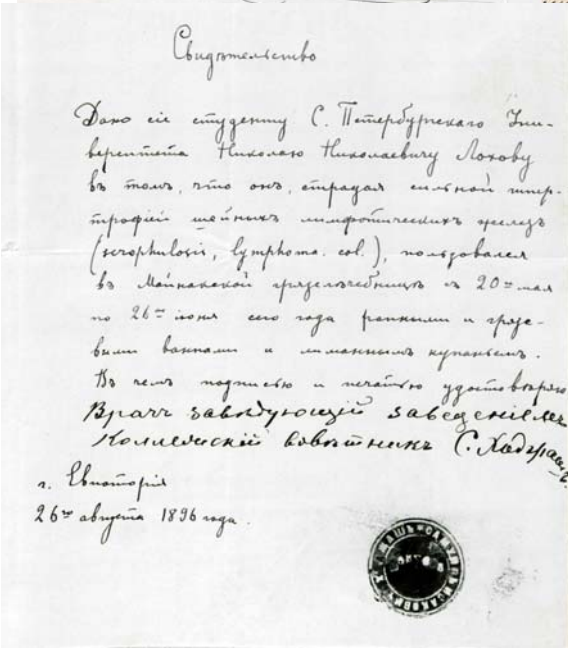 Свидѣтельство
Дано сіе студенту С. Петербургскаго Уни-
верситета Николаю Николаевичу Лохову
въ томъ, что онъ, страдая сильной гипер-
трофіей шейныхъ лимфотическихъ железъ
(scrophulosis, lymphoma. col.), пользовался
въ Майнакской грязелечебницѣ съ 20го мая
по 26го іюня сего года рапными и грязе-
выми ваннами и лиманнымъ купаньемъ.
Въ чемъ подписью и печатью удостовѣряю
Врачъ завѣдующій заведеніемъ
Коллежскій совѣтникъ С. Ходграшъ.
г. Евпаторія
26го августа 1896 года.